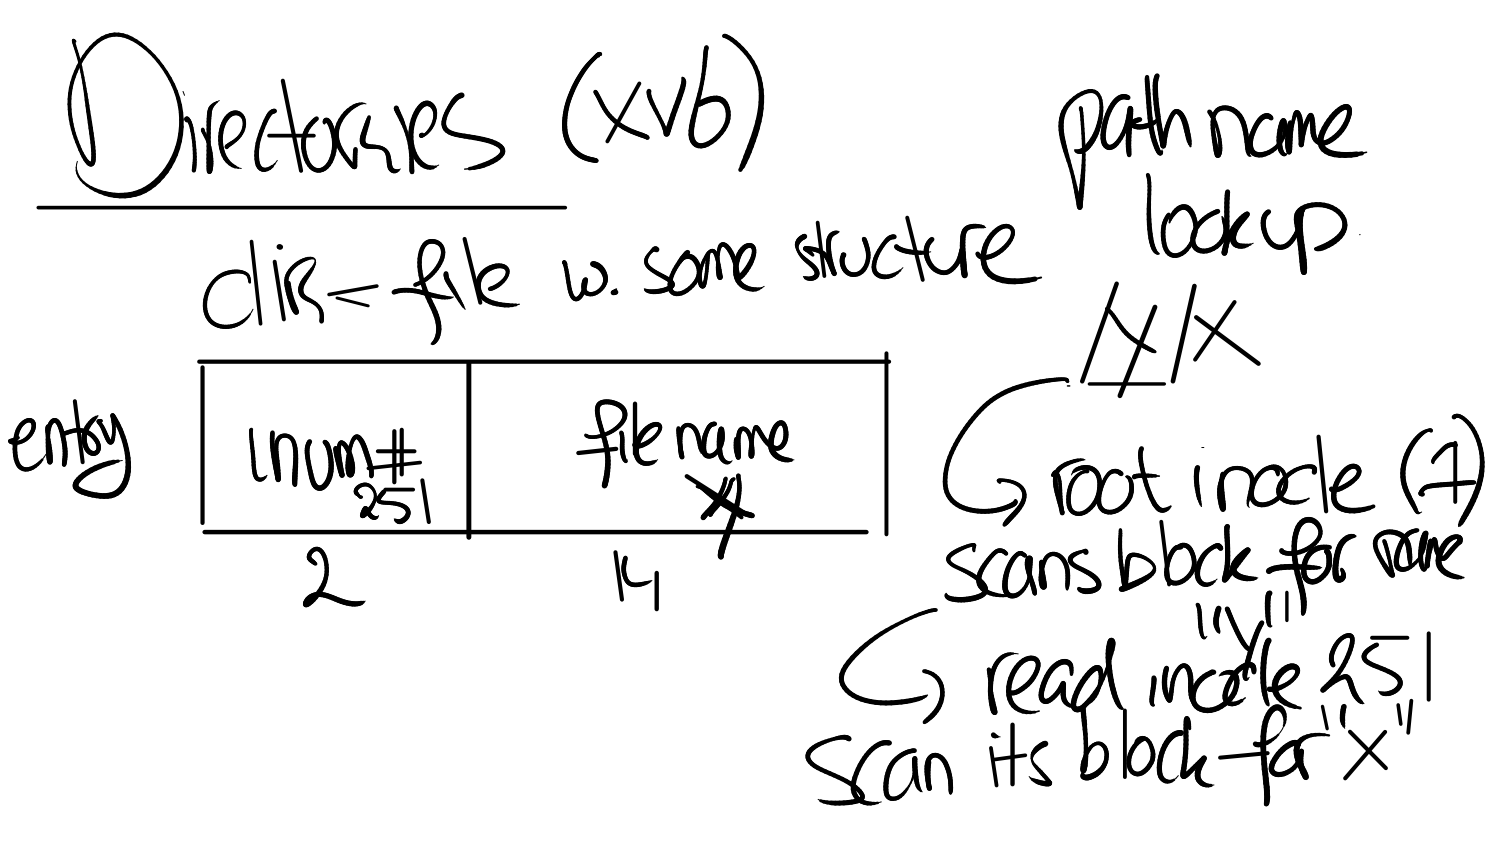 Directories (xv6)
dir ← file w. some structure
entry
inum#
251
file name
y
2
14
path name
lookup
/y/x
root inode (1)
scans block for name
"y"
read inode 251
scan its block for "x"